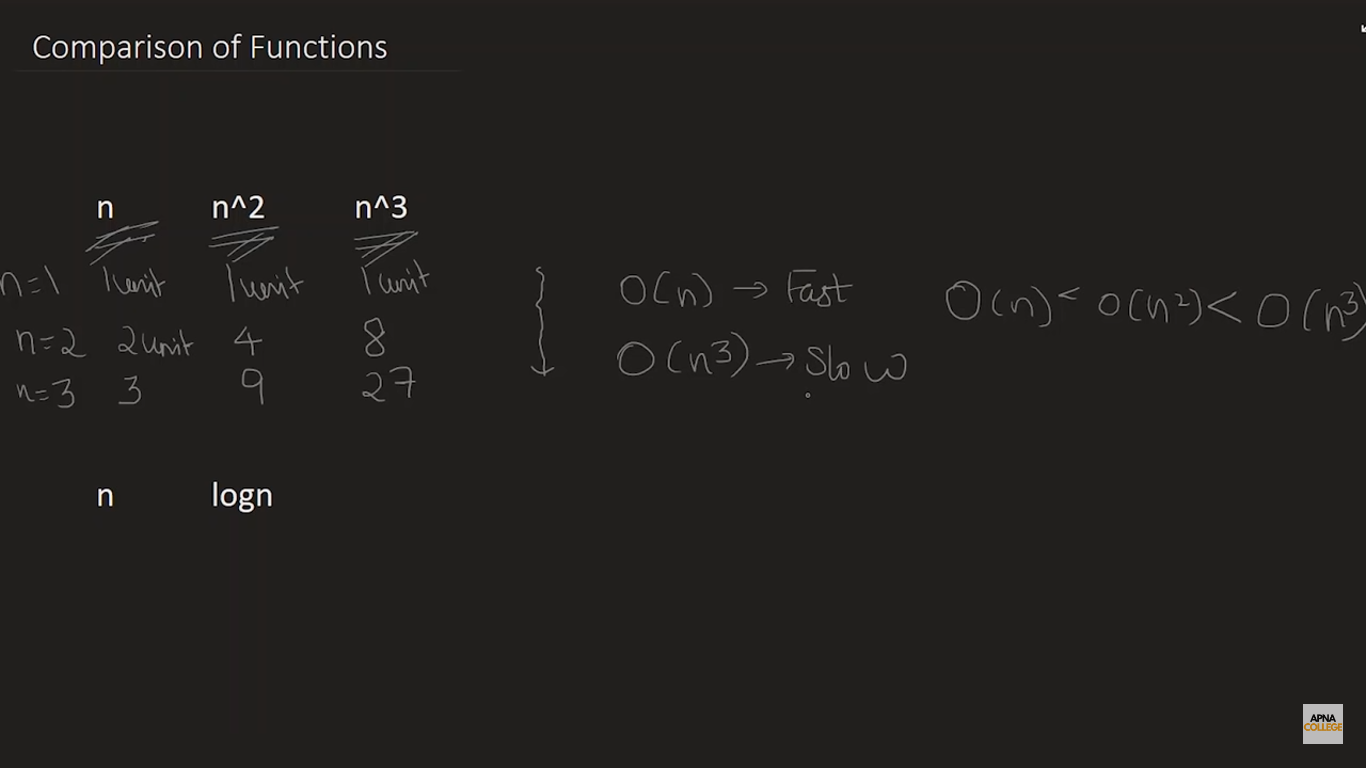 Comparison of Functions
n n^2 n^3
n=1 1 unit 1 unit 1 unit
n=2 2 unit 4 8
n=3 3 9 27
O(n) → Fast
O(n³) → Slow
O(n) < O(n²) < O(n³)
n logn
APNA
COLLEGE